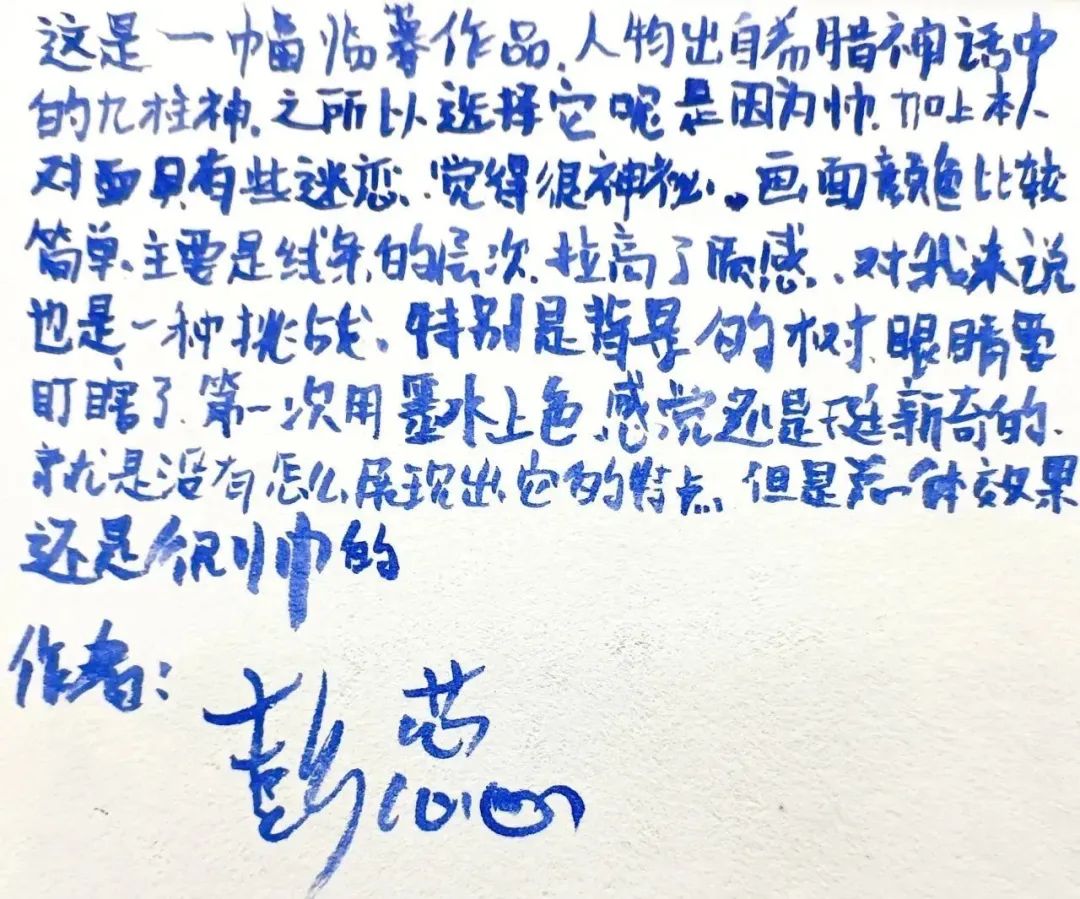 这是一幅临摹作品、人物出自希腊神话中
的九柱神、之所以选择它呢是因为帅、加上本人
对面具有些迷恋、觉得很神秘。画面颜色比较
简单、主要是线条的层次、拉高了质感、对我来说
也是一种挑战、特别是背景的树、眼睛要
盯瞎了、第一次用墨水上色、感觉还是挺新奇的、
就是没有怎么展现出它的特点、但是总体效果
还是很帅的
作者：
彭蕊